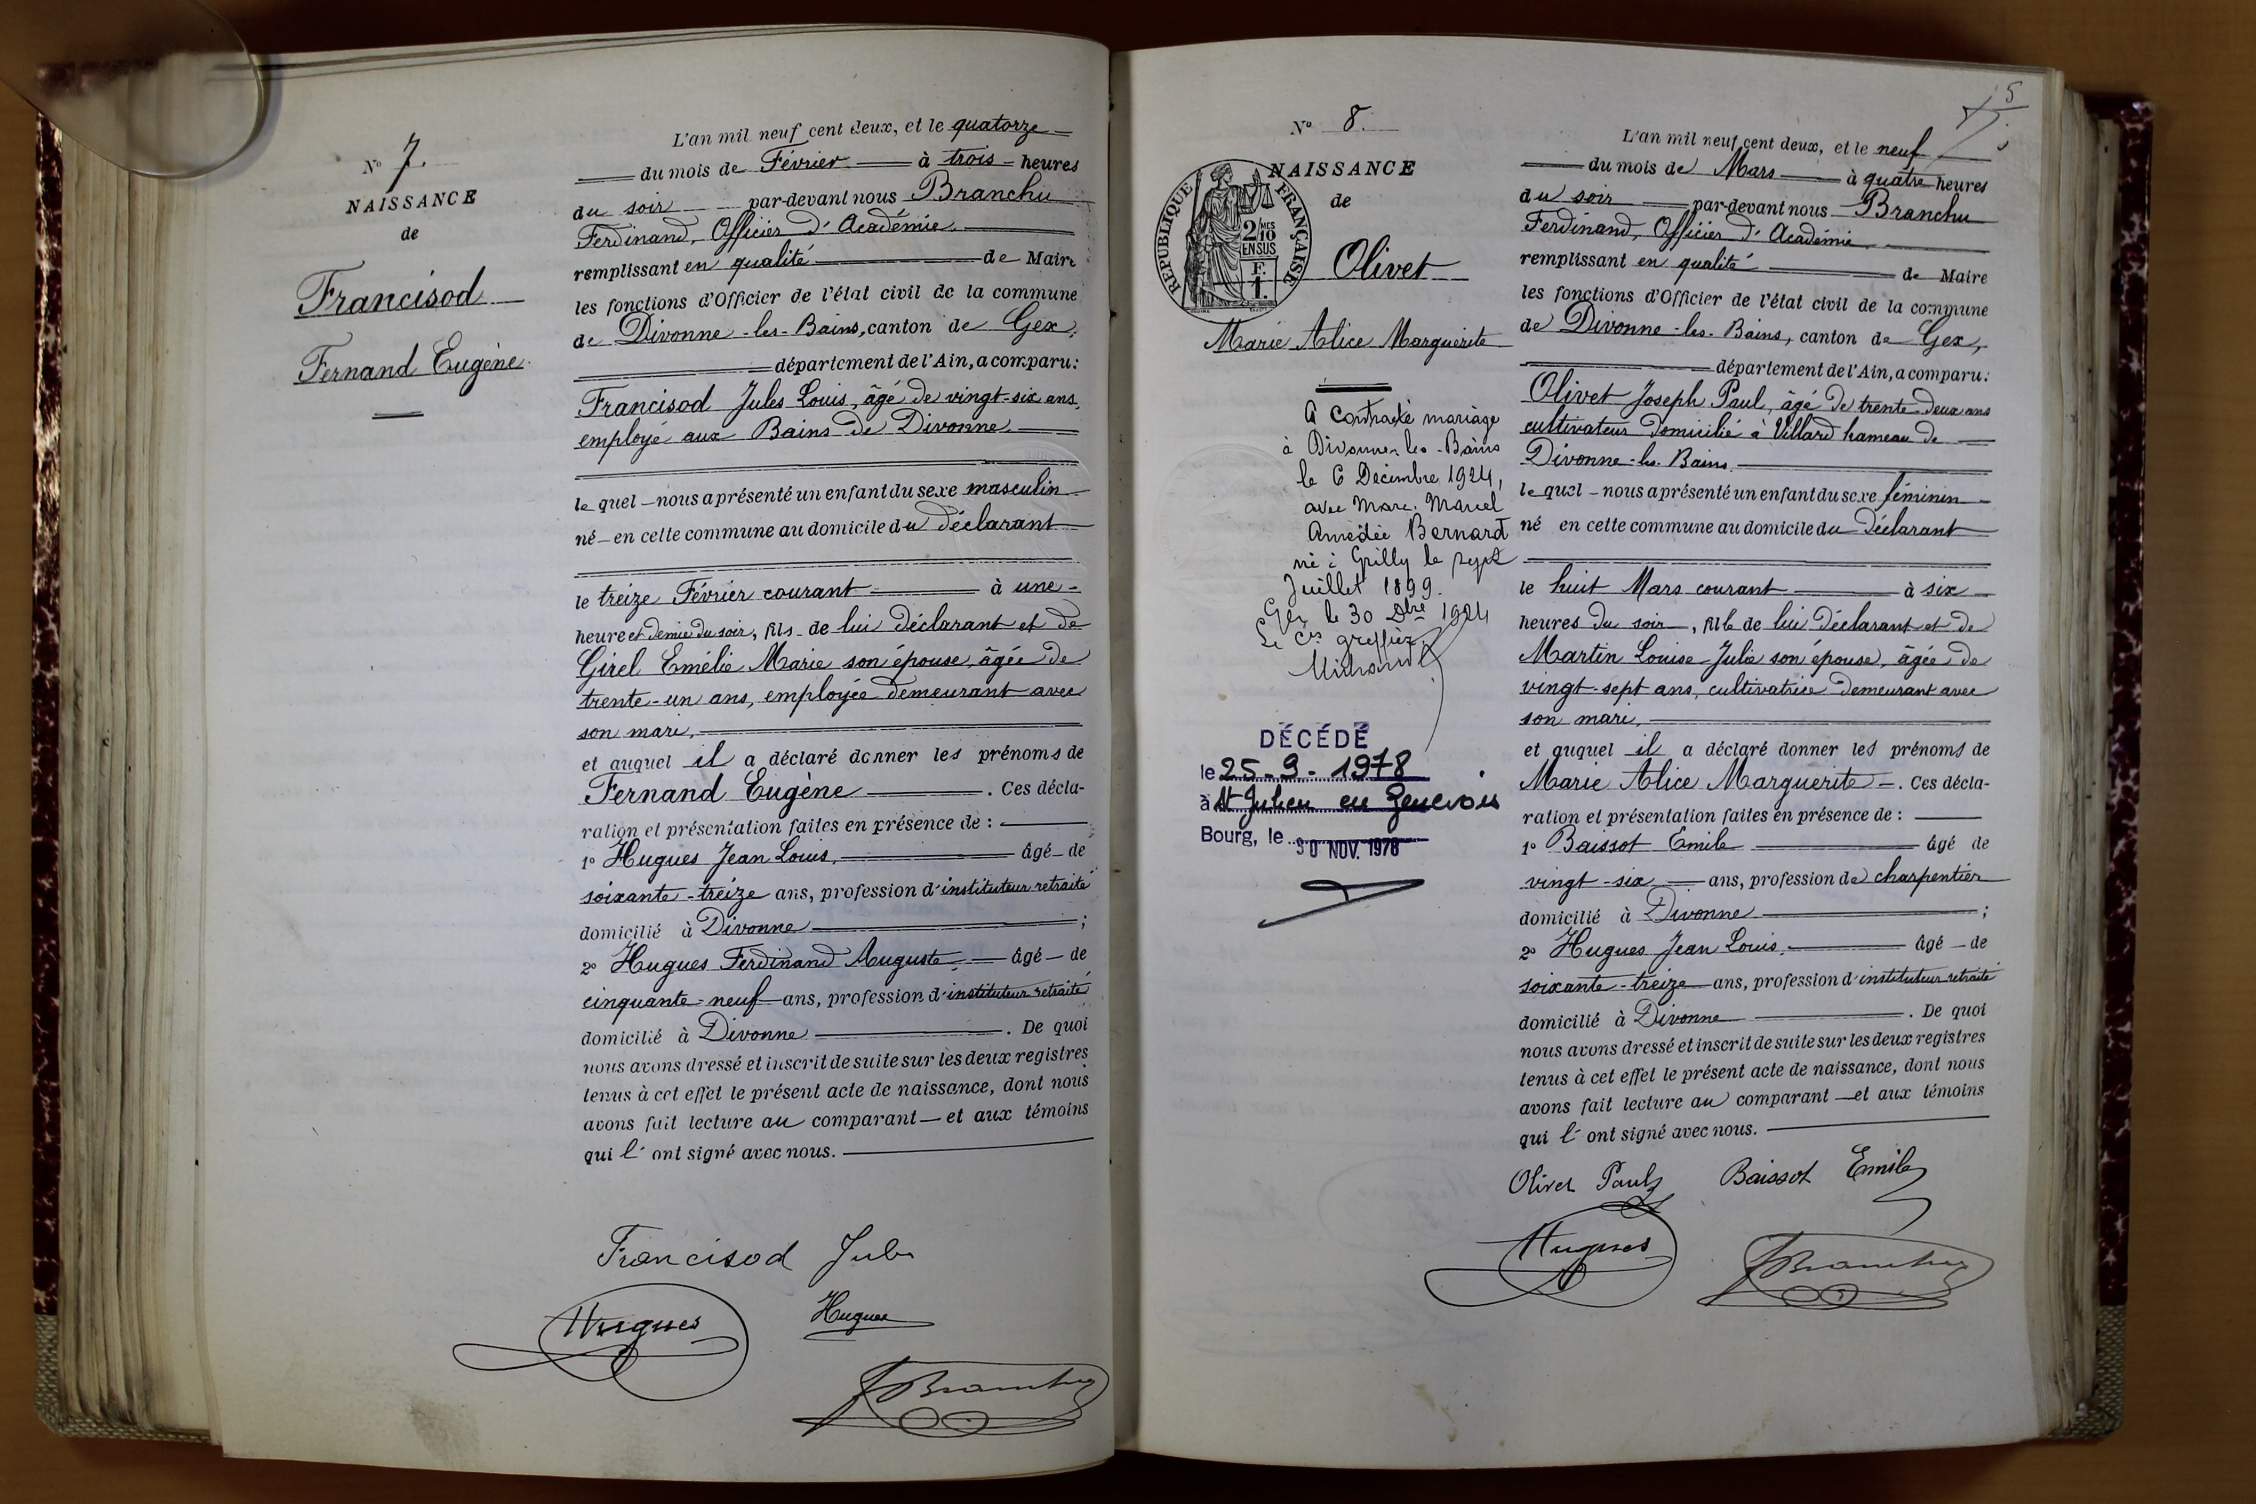 Nº 7.
NAISSANCE
de
Francisod
Fernand Eugène.
L'an mil neuf cent deux, et le quatorze
du mois de Février à trois heures
du soir par-devant nous Branchu
Ferdinand, Officier d'Académie
remplissant en qualité de Maire
les fonctions d'Officier de l'état civil de la commune
de Divonne-les-Bains, canton de Gex,
département de l'Ain, a comparu:
Francisod Jules Louis, âgé de vingt-six ans,
employé aux Bains de Divonne.
lequel nous a présenté un enfant du sexe masculin
né en cette commune au domicile du déclarant
le treize Février courant à une
heure et demie du soir, fils de lui déclarant et de
Girel Emélie Marie son épouse, âgée de
trente-un ans, employée demeurant avec
son mari,
et auquel il a déclaré donner les prénoms de
Fernand Eugène. Ces décla-
ration et présentation faites en présence de :
1º Hugues Jean Louis, âgé de
soixante-treize ans, profession d'instituteur retraité
domicilié à Divonne ;
2º Hugues Ferdinand Auguste, âgé de
cinquante-neuf ans, profession d'instituteur retraité
domicilié à Divonne. De quoi
nous avons dressé et inscrit de suite sur les deux registres
tenus à cet effet le présent acte de naissance, dont nous
avons fait lecture au comparant et aux témoins
qui l'ont signé avec nous.
Francisod Jules
Hugues Hugues
FBranchu
5
Nº 8.
NAISSANCE
de
REPUBLIQUE FRANÇAISE
2/10 MES
EN SUS
F.
1.
Olivet
Marie Alice Marguerite
A contracté mariage
à Divonne-les-Bains
le 6 Décembre 1924,
avec Marc Marcel
Amédée Bernard
né à Grilly le sept
Juillet 1899.
Gex le 30 Dbre 1924
Le Cis greffier
DÉCÉDÉ
le 25-9-1978
à St Julien en Genevois
Bourg, le 30 NOV. 1978
L'an mil neuf cent deux, et le neuf
du mois de Mars à quatre heures
du soir par-devant nous Branchu
Ferdinand, Officier d'Académie
remplissant en qualité de Maire
les fonctions d'Officier de l'état civil de la commune
de Divonne-les-Bains, canton de Gex,
département de l'Ain, a comparu:
Olivet Joseph Paul, âgé de trente-deux ans
cultivateur domicilié à Villard hameau de
Divonne-les-Bains
lequel nous a présenté un enfant du sexe féminin
né en cette commune au domicile du déclarant
le huit Mars courant à six
heures du soir, fille de lui déclarant et de
Martin Louise Julie son épouse, âgée de
vingt-sept ans, cultivatrice demeurant avec
son mari,
et auquel il a déclaré donner les prénoms de
Marie Alice Marguerite. Ces décla-
ration et présentation faites en présence de :
1º Baissot Emile âgé de
vingt-six ans, profession de charpentier
domicilié à Divonne ;
2º Hugues Jean Louis, âgé de
soixante-treize ans, profession d'instituteur retraité
domicilié à Divonne. De quoi
nous avons dressé et inscrit de suite sur les deux registres
tenus à cet effet le présent acte de naissance, dont nous
avons fait lecture au comparant et aux témoins
qui l'ont signé avec nous.
Olivet Paul Baissot Emile
Hugues FBranchu